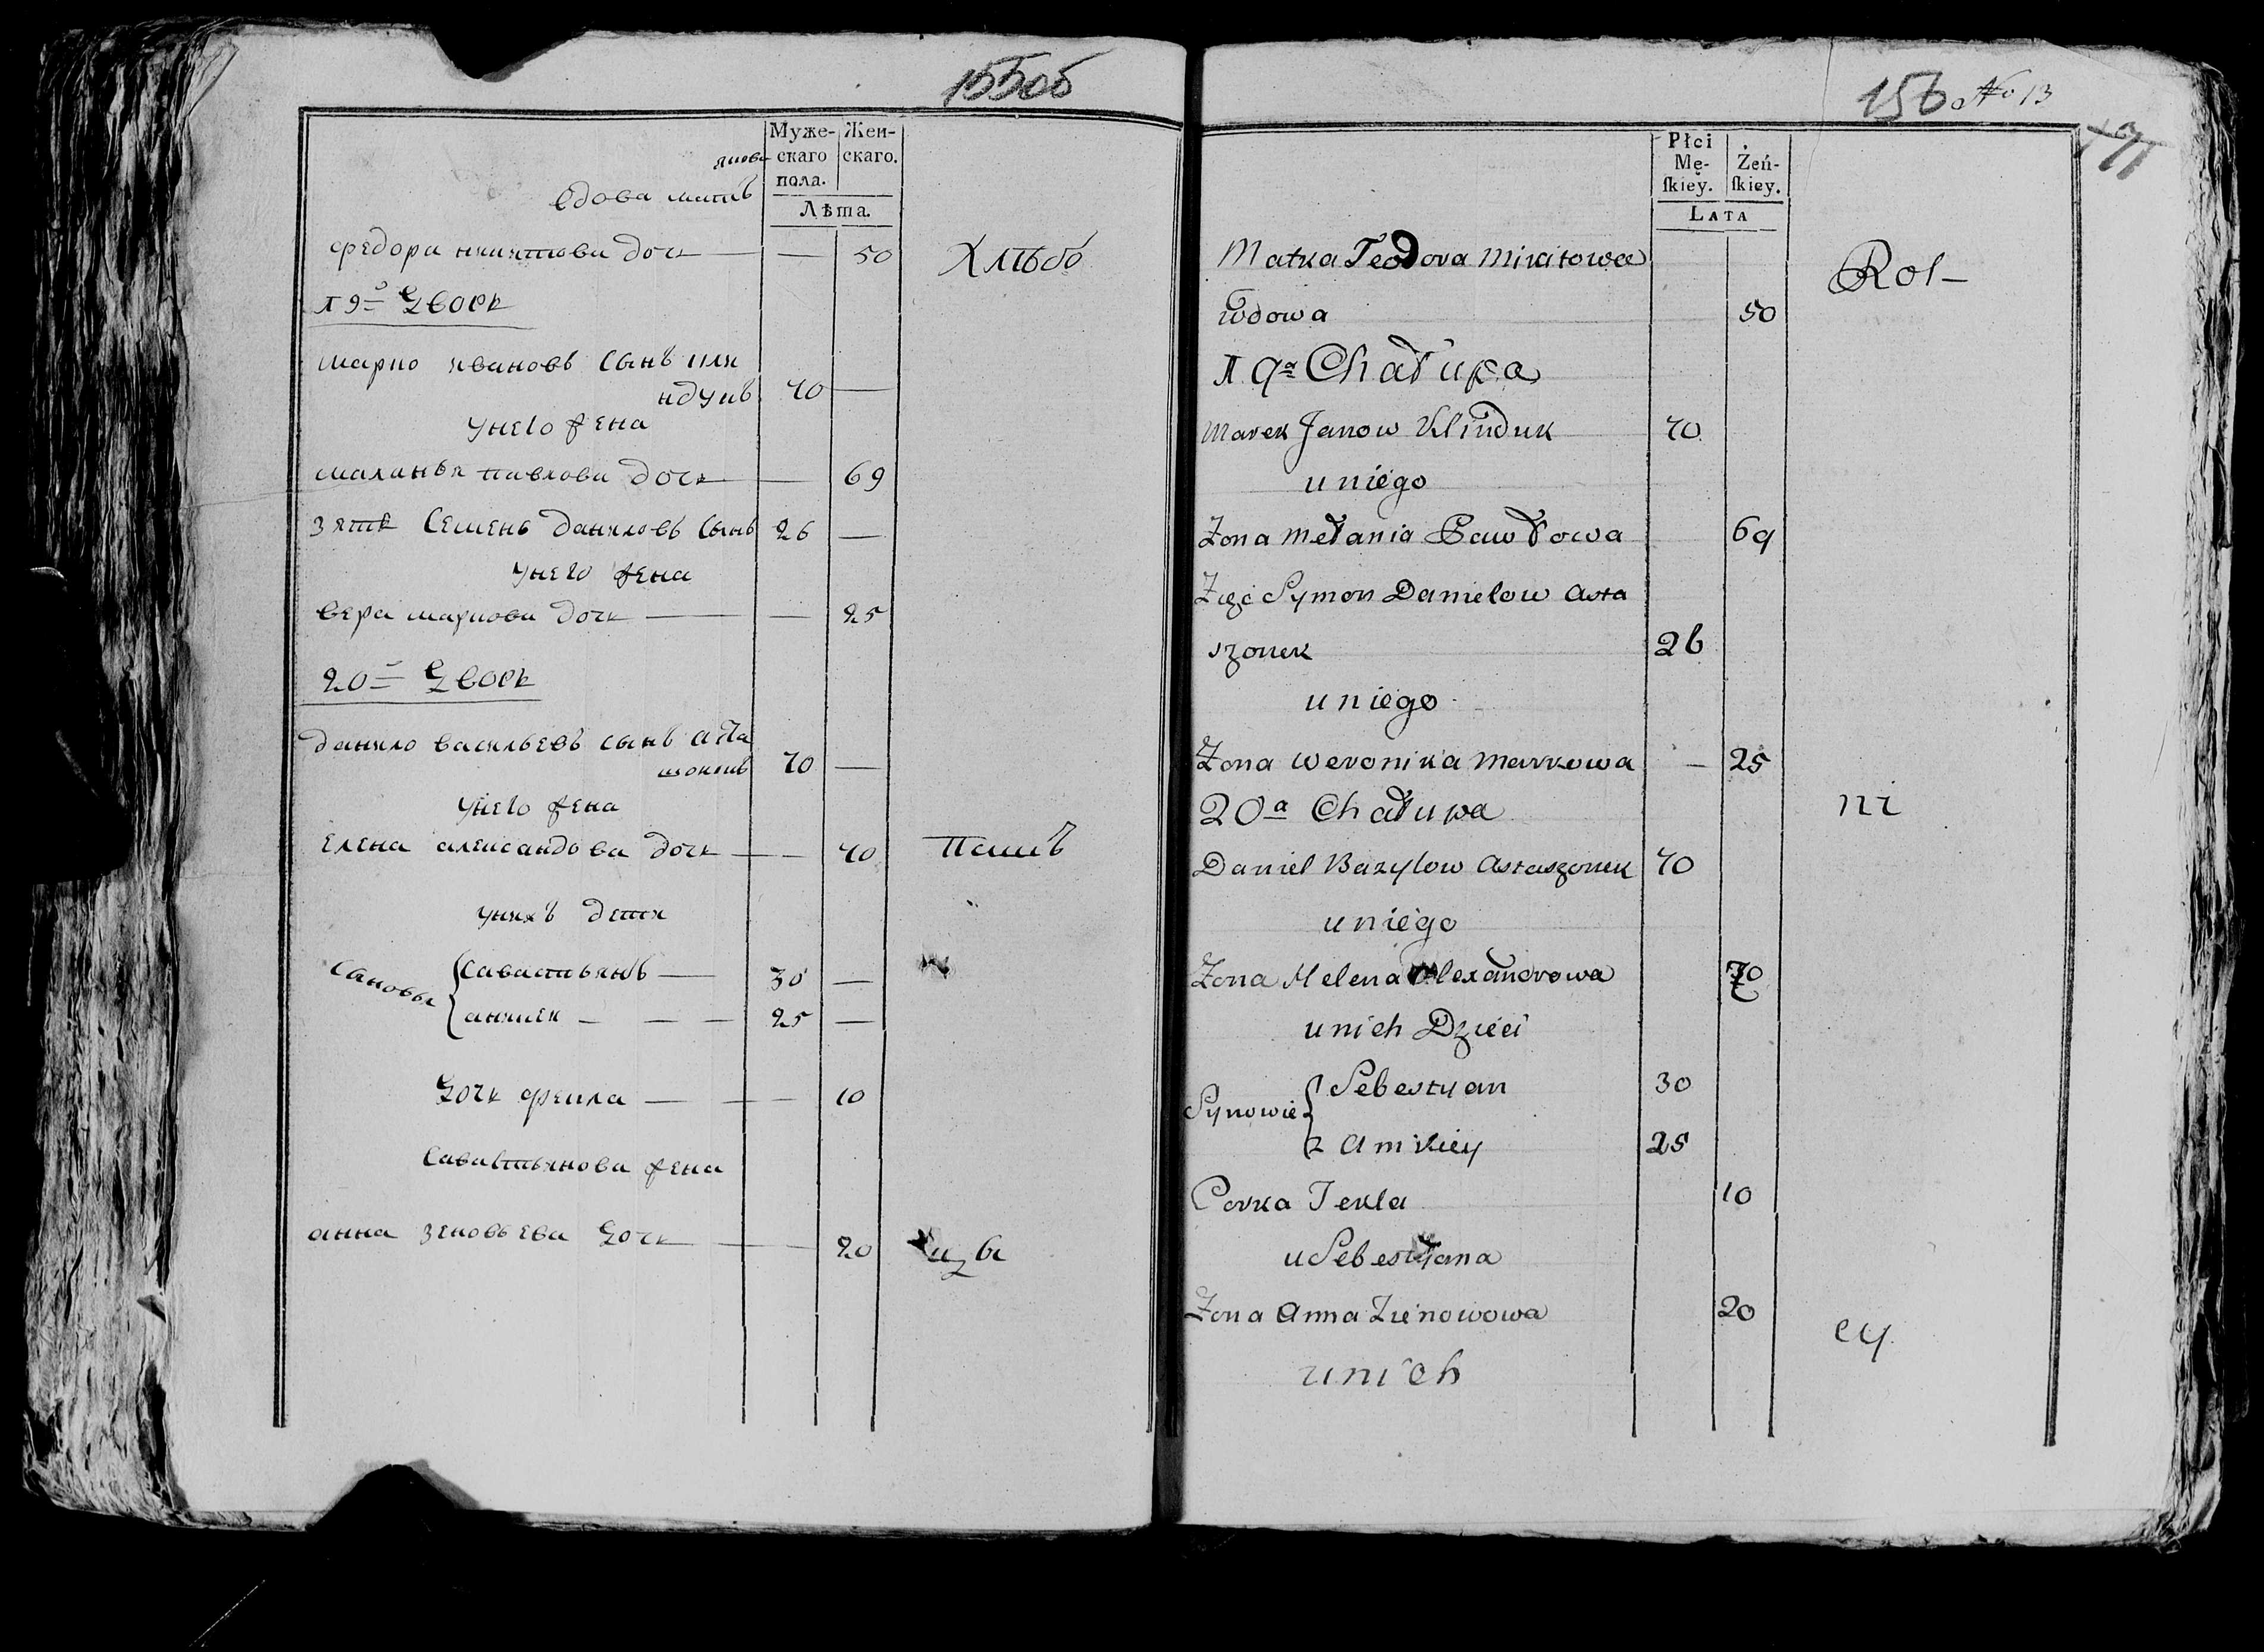 155об
Муже- Жен-
скаго скаго.
пола.
Лѣта.
янова
вдова мать
федора никитова дочь — — 50 Хлѣбо
19= Дворъ
марко ивановъ сынъ кли
ндукъ 70 —
унего жена
маланья павлова дочь — 69
зять Семенъ даниловъ сынъ 26 —
унего жена
вера маркова дочь — — 25
20= Дворъ
данило васильевъ сынъ аста
шонокъ 70 —
унего жена
елена александова дочь — — 70 пашъ
унихъ дети
сановы {савастьянъ — 30 —
{аникей — — — 25 —
Дочь фекла — — — 10
Савастьянова жена
анна зеновьева Дочь — — 20 цы
156 No 13
Płci
Mę- Żeń-
ſkiey. ſkiey.
LATA
Matka Teodora Mikitowa
wdowa 50 Rol-
19a Chałupa
Marek Janow Klinduk 70
uniego
Zona Mełania Pawłowa 69
Zięć Symon Danielow Asta
szonek 26
uniego
Zona Weronika Markowa — 25
20a Chałupa ni
Daniel Bazylow Astaszonek 70
uniego
Zona Helena Alexandrowa 70
unich Dzieci
Synowie { Sebestyan 30
{ 2 Amikiey 25
Corka Tekla 10
u Sebestyana
Zona Anna Zienowowa 20 cy
unich